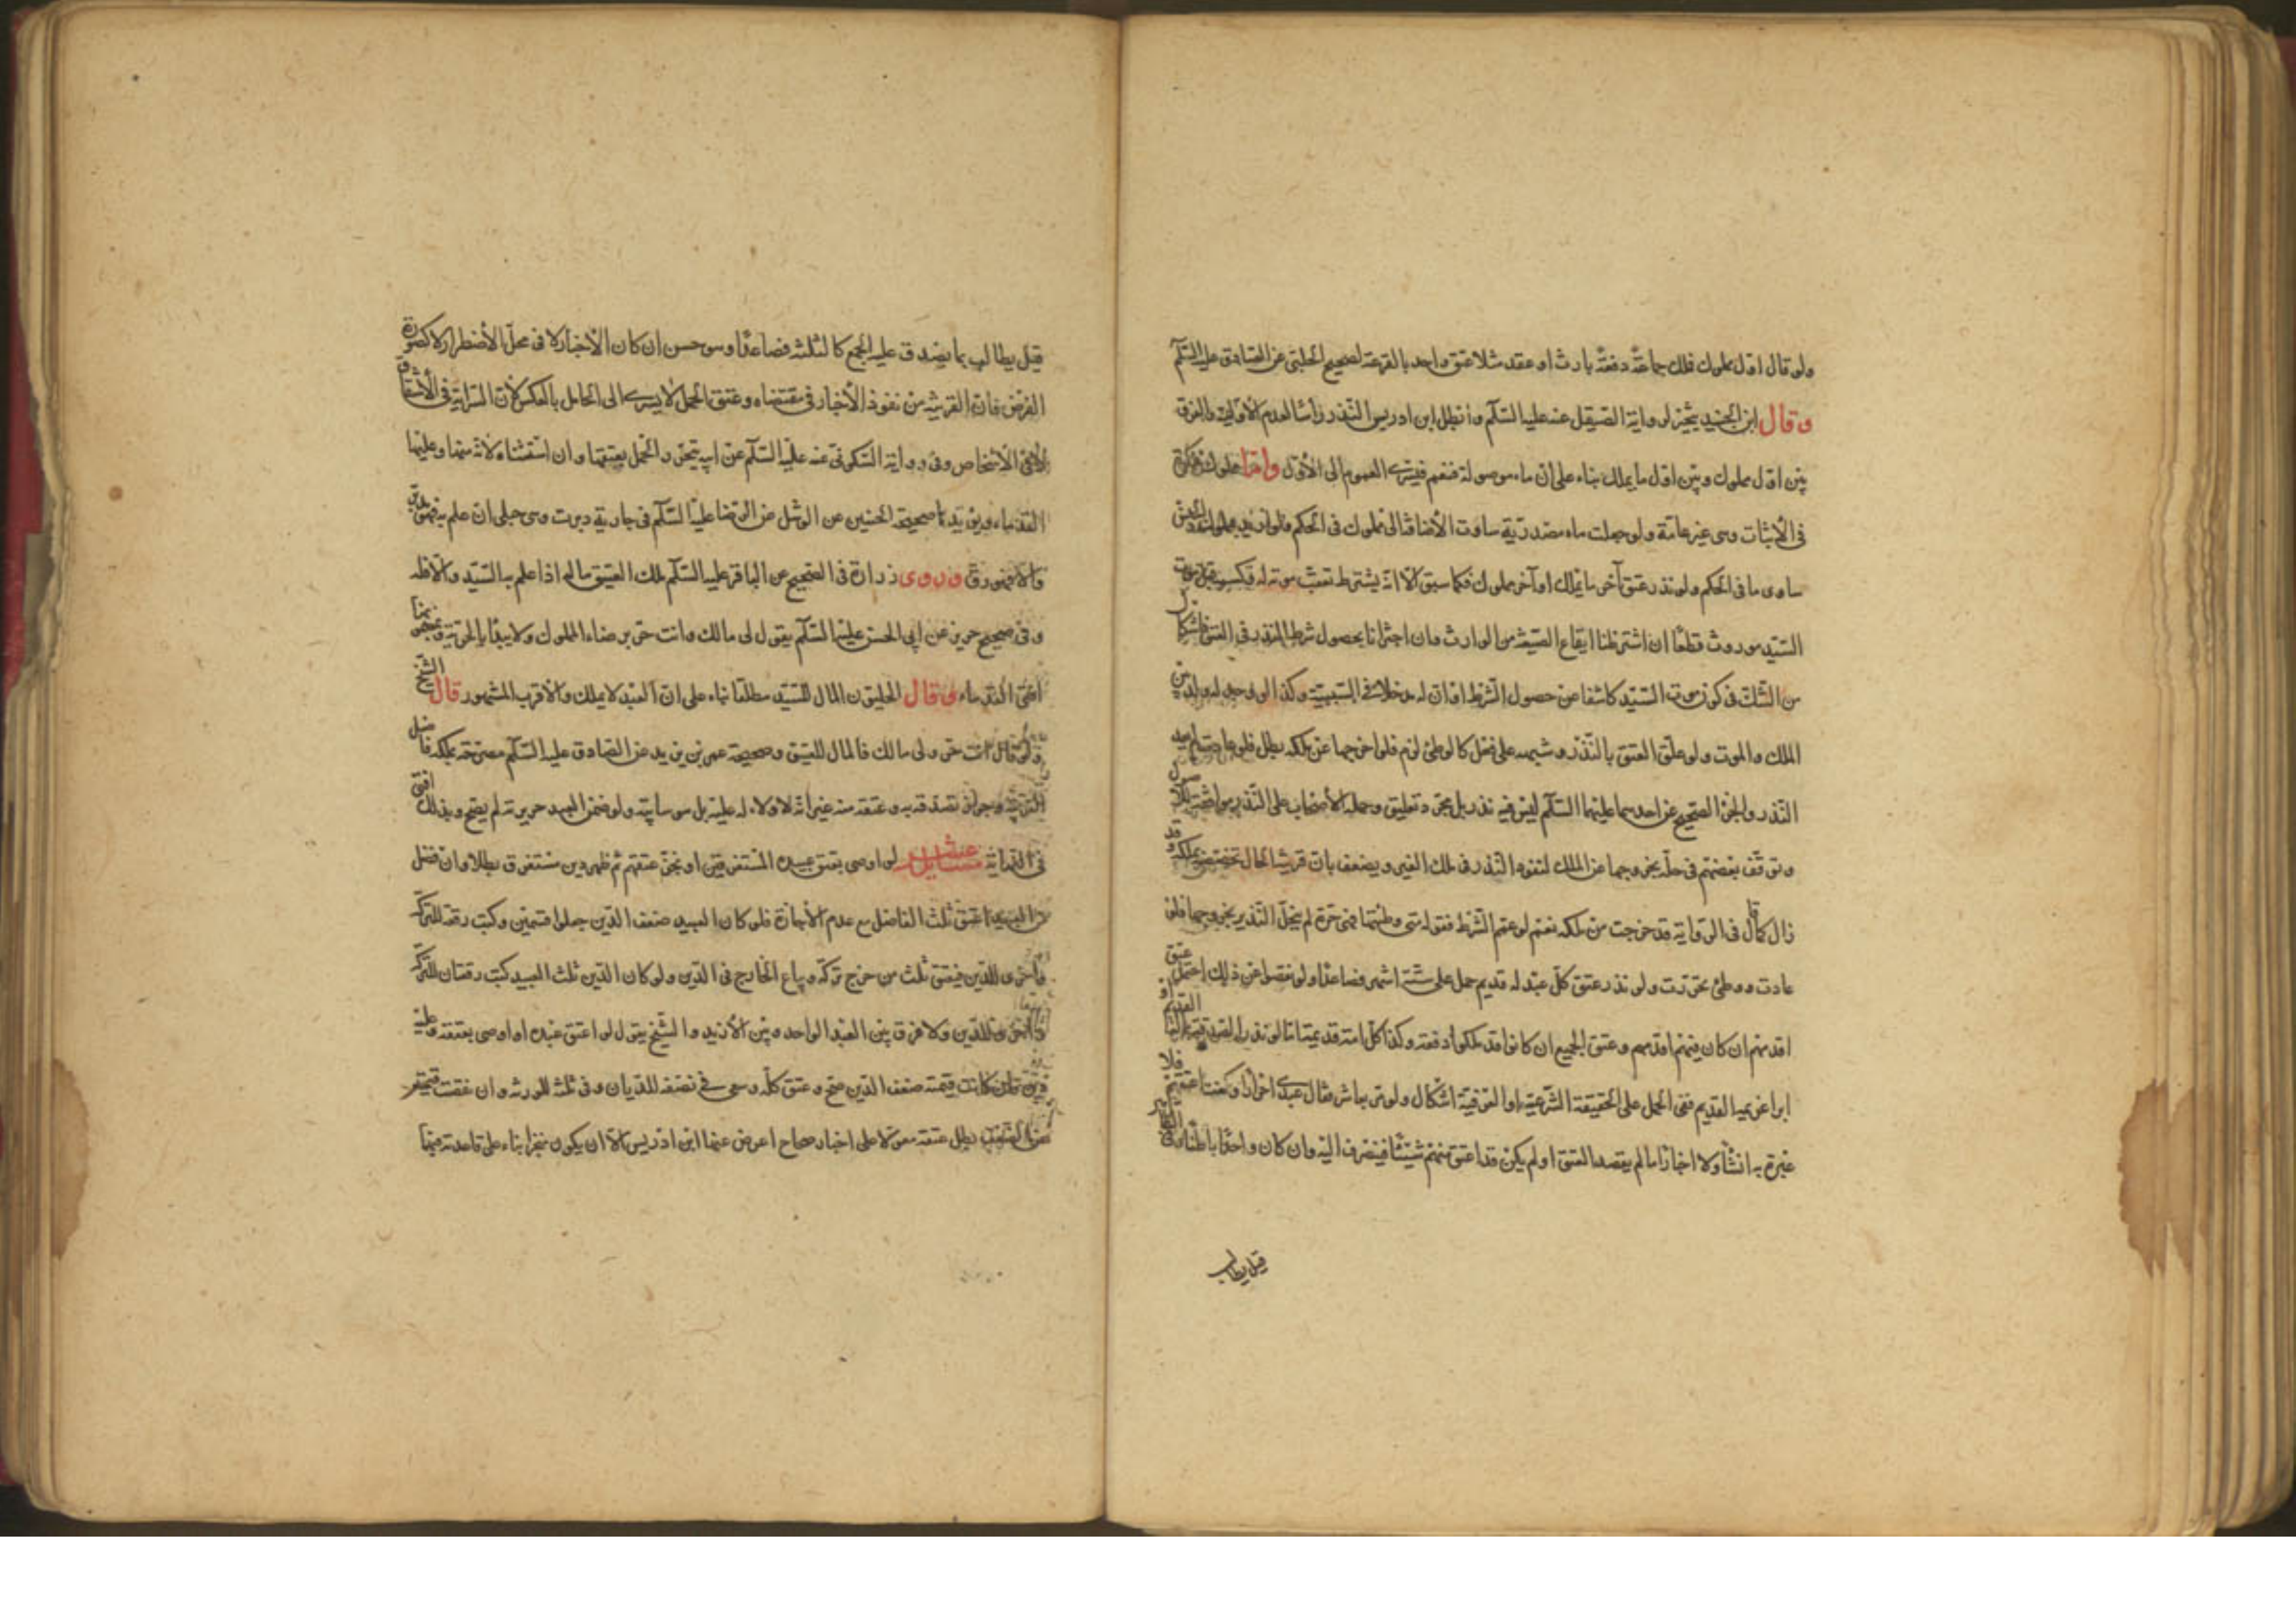 ولو قال اول مملوك فملك جماعة دفعة بارث او عقد مثلا عتق واحد بالقرعة لصحيح الحلبي عن الصادق عليه السلام
وقال ابن الجنيد يتخير لرواية الصيقل عنه عليه السلام وابطل ابن ادريس النذر راسا لعدم الاولية والفرق
بين اول مملوك وبين اول ما يملك بناء على ان ماء موصولة فتعم فيسرى العموم الى الاول واما مملوك فنكرة
في الاثبات وهى غير عامة ولو جعلت ماء مصدرية ساوت الأضافة الى مملوك في الحكم فلو اريد بمملوك الجنس
ساوى ما في الحكم ولو نذر عتق آخر ما يملك او آخر مملوك فكما سبق الا انه يشترط تعقب موته له فكسبه قبل موت
السيد موروث قطعا ان اشترطنا ايقاع الصيغة من الوارث وان اجتزانا بحصول شرط النذر في العتق فاشكال
من الشك في كون موت السيد كاشفا عن حصول الشرط او ان له مدخلا في السببية وكذا الوطى
الملك والموت ولو علق العتق بالنذر وشبهه على فعل كالوطئ لزم فلو اخرجها عن ملكه بطل فلو عادت لم يعد
النذر والخبر الصحيح عن احدهما عليهما السلام ليس فيه نذر بل مجرد تعليق وحمله الأصحاب على النذر
وتوقف بعضهم في حله بخروجها عن الملك لتفوه النذر في ملك الغير ويضعف بان قرينة الحال تخصصه بملكه وقد
زال كما قال في الرواية قد خرجت من ملكه نعم لو عمم الشرط فقوله متى وطئتها فهى حرة لم ينحل النذر بخروجها فلو
عادت ووطئ تحررت ولو نذر عتق كل عبد له قديم حمل على ستة اشهر فصاعدا ولو نقصوا عن ذلك احتمل عتق
اقدمهم ان كان فيهم اقدمهم وعتق الجميع ان كانوا قد ملكوا دفعة وكذا كل امة قديمة اما لو نذر الصدقة بماله القديم او
ابرا غريمه القديم ففى الحمل على الحقيقة الشرعية او العرفية اشكال ولو مر بعاشر فقال عبيدى احرار او كنت اعتقتهم فلا
عبرة به انشاء ولا اخبارا ما لم يقصد العتق او لم يكن قد اعتق منهم شيئا فينصرف اليه وان كان واحدا باطنا وفى الظاهر
قيل يطالب
قيل يطالب بما يصدق عليه الجمع كالثلثه فصاعدا وهو حسن ان كان الأخبار لا في محل الأضطرار لا كصورة
الفرض فان القرينة من نفوذ الأخبار في مقتضاه وعتق الحمل لا يسرى الى الحامل بالعكس لأن السراية في الأشقاص
لا في الأشخاص وفى رواية السكونى عنه عليه السلام عن ابيه تحرر الحمل بعتقها وان استثناه لانه منها وعليها
القدماء ويؤيدها صحيحة الحسين عن الوشا عن الرضا عليه السلام في جارية دبرت وهى حبلى ان علم به فهو مدبر
والا فهو رق وروى زرارة في الصحيح عن الباقر عليه السلام ملك العتيق ماله اذا علم به السيد والا فله
وفى صحيح حريز عن ابى الحسن عليهما السلام يقول لى مالك وانت حر برضاء المملوك ولا يبدا بالحرية وبمضمونها
افتى القدماء وقال الحليون المال للسيد مطلقا بناء على ان العبد لا يملك والاقرب المشهور قال الشيخ
ولو قال انت حر ولى مالك فالمال للعتيق وصحيحة عمر بن يزيد عن الصادق عليه السلام مصرحة بملكه فاضل
الضريبة وجواز تصدقه به وعتقه منه غير انه لا ولاء له عليه بل هو سائبة ولو ضمن العبد جريرته لم يصح وبذلك افتى
في النهاية مسائل لو اوصى بعتق عبيده المستغرقين او نجز عتقهم ثم ظهر دين مستغرق بطلا وان فضل
من العبيد اعتق ثلث الفاضل مع عدم الأجازة فلو كان العبيد ضعف الدين جعلوا قسمين وكتب رقعة للتركة
واخرى للدين فيعتق ثلث من خرج تركة ويباع الخارج في الدين ولو كان الدين ثلث العبيد كتب رقعتان للتركة
واخرى للدين ولا فرق بين العبد الواحد وبين الأزيد والشيخ يقول لو اعتق عبده او اوصى بعتقه وعليه
دين فان كانت قيمته ضعف الدين صح وعتق كله وسعى في نصفه للديان وفى ثلثه للورثه وان نقصت قيمته
عن الضعف بطل عتقه معولا على اخبار صحاح اعرض عنها ابن ادريس الا ان يكون منجزا بناء على قاعدته فيها